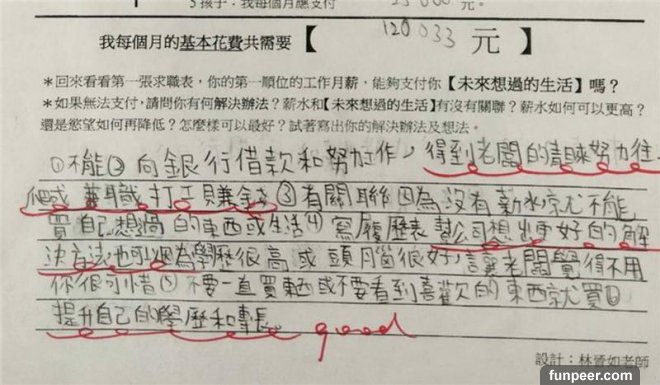 5 孩子：我每個月應支付 25000 元。
我每個月的基本花費共需要【 120033 元】
＊回來看看第一張求職表，你的第一順位的工作月薪，能夠支付你【未來想過的生活】嗎？
＊如果無法支付，請問你有何解決辦法？薪水和【未來想過的生活】有沒有關聯？薪水如何可以更高？
還是慾望如何再降低？怎麼樣可以最好？試著寫出你的解決辦法及想法。
①不能②向銀行借款和努力工作，得到老闆的青睞努力往上
爬或兼職打工賺錢③有關聯因為沒有薪水就不能
買自己想過的東西或生活④寫履歷表幫公司想出更好的解
決方法也可以因為學歷很高或頭腦很好，讓老闆覺得不用
你很可惜⑤不要一直買東西或不要看到喜歡的東西就買⑥
提升自己的學歷和專長。 good
設計：林晉如老師
funpeer.com